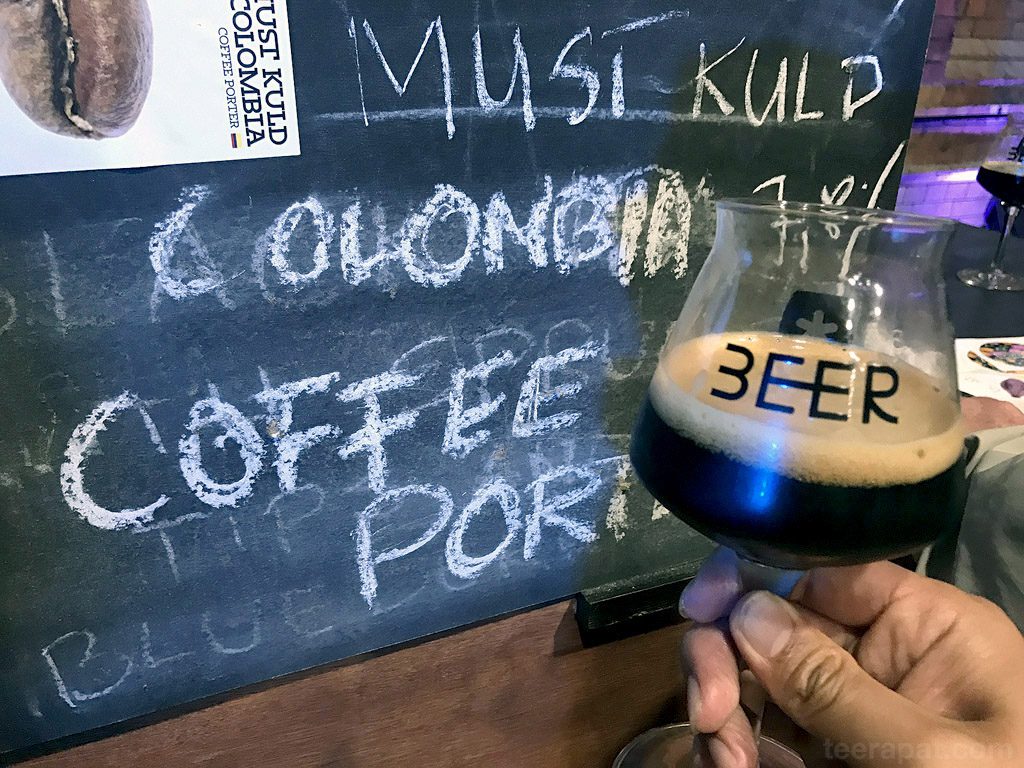 MUST KULD
COLOMBIA
COFFEE PORTER
MUST KULD
COLONBIA 7,8%
COFFEE
PORT
BLUE
BEER
teerapat.com